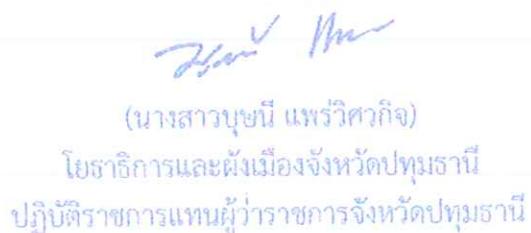 (นางสาวบุษนี แพร่วิศวกิจ)
โยธาธิการและผังเมืองจังหวัดปทุมธานี
ปฏิบัติราชการแทนผู้ว่าราชการจังหวัดปทุมธานี